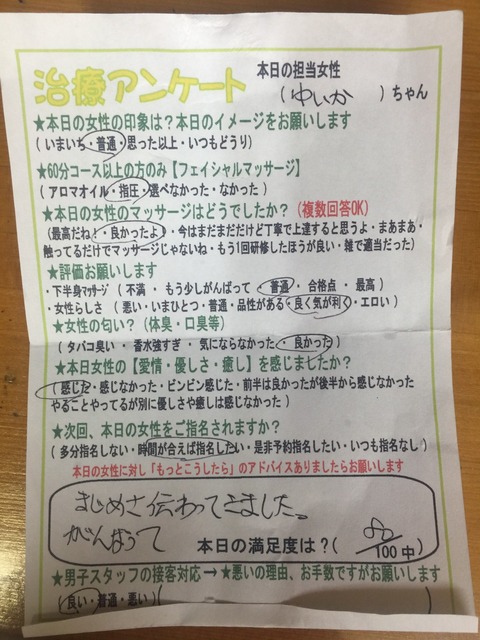 治療アンケート
本日の担当女性
(ゆいか)ちゃん
★本日の女性の印象は？本日のイメージをお願いします
(いまいち・普通・思った以上・いつもどうり)
★60分コース以上の方のみ【フェイシャルマッサージ】
(アロマオイル・指圧・選べなかった・なかった)
★本日の女性のマッサージはどうでしたか？(複数回答OK)
(最高だね！・良かったよ！・今はまだまだだけど丁寧で上達すると思うよ・まあまあ・
触ってるだけでマッサージじゃないね・もう1回研修したほうが良い・雑で適当だった)
★評価お願いします
・下半身マッサージ (不満 ・ もう少しがんばって ・ 普通 ・ 合格点 ・ 最高)
・女性らしさ (悪い・いまひとつ・普通・品性がある・良く気が利く・エロい)
★女性の匂い？(体臭・口臭等)
(タバコ臭い ・ 香水強すぎ ・ 気にならなかった ・ 良かった)
★本日女性の【愛情・優しさ・癒し】を感じましたか？
(感じた・感じなかった・ビンビン感じた・前半は良かったが後半から感じなかった
やることやってるが別に優しさや癒しは感じなかった)
★次回、本日の女性をご指名されますか？
(多分指名しない・時間が合えば指名したい・是非予約指名したい・いつも指名なし)
本日の女性に対し「もっとこうしたら」のアドバイスありましたらお願いします
まじめさ伝わってきました。
がんばって
本日の満足度は？(80/100中)
★男子スタッフの接客対応→★悪いの理由、お手数ですがお願いします
(良い・普通・悪い)( )